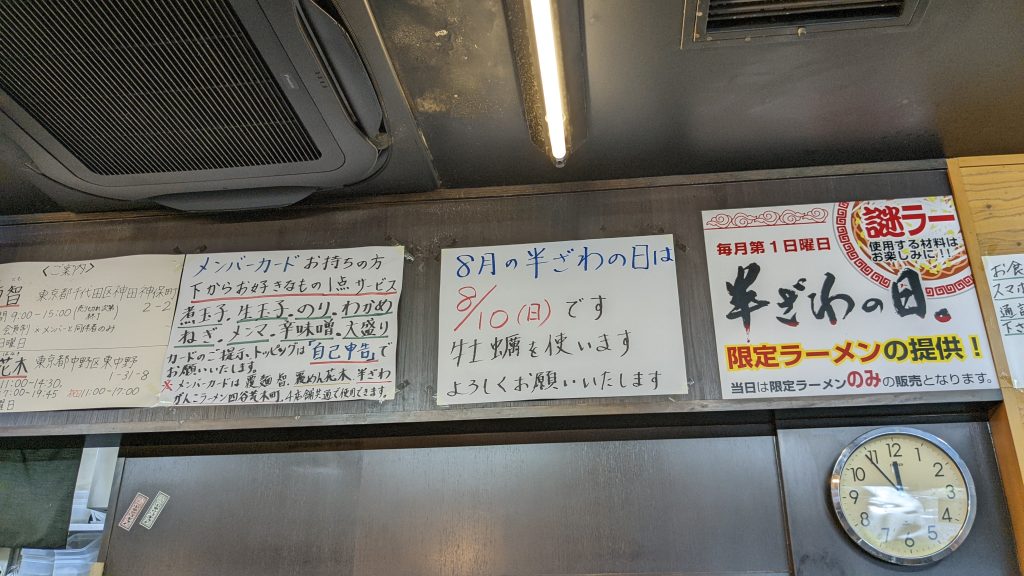 〈ご案内〉
智
東京都千代田区神田神保町
2-2
9:00-15:00
会員制 ×メンバーと同伴者のみ
日曜日
花木 東京都中野区東中野
1-31-8
11:00-14:30,
17:00-19:45 祝日11:00-17:00
曜日
メンバーカード お持ちの方
下からお好きなもの1点サービス
煮玉子、生玉子、のり、わかめ
ねぎ、メンマ、辛味噌、大盛り
カードのご提示、トッピングは「自己申告」で
お願いいたします。
※メンバーカードは 覆麺 智、覆めん花木、半ざわ
がんこラーメン四谷荒木町、4店舗共通で使用できます。
8月の半ざわの日は
8/10(日)です
牡蠣を使います
よろしくお願いいたします
毎月第1日曜日
謎ラー
使用する材料は
お楽しみに!!
半ざわの日。
限定ラーメンの提供!
当日は限定ラーメンのみの販売となります。
お食
スマホ
通
下さ
12
1
2
3
4
5
6
7
8
9
10
11